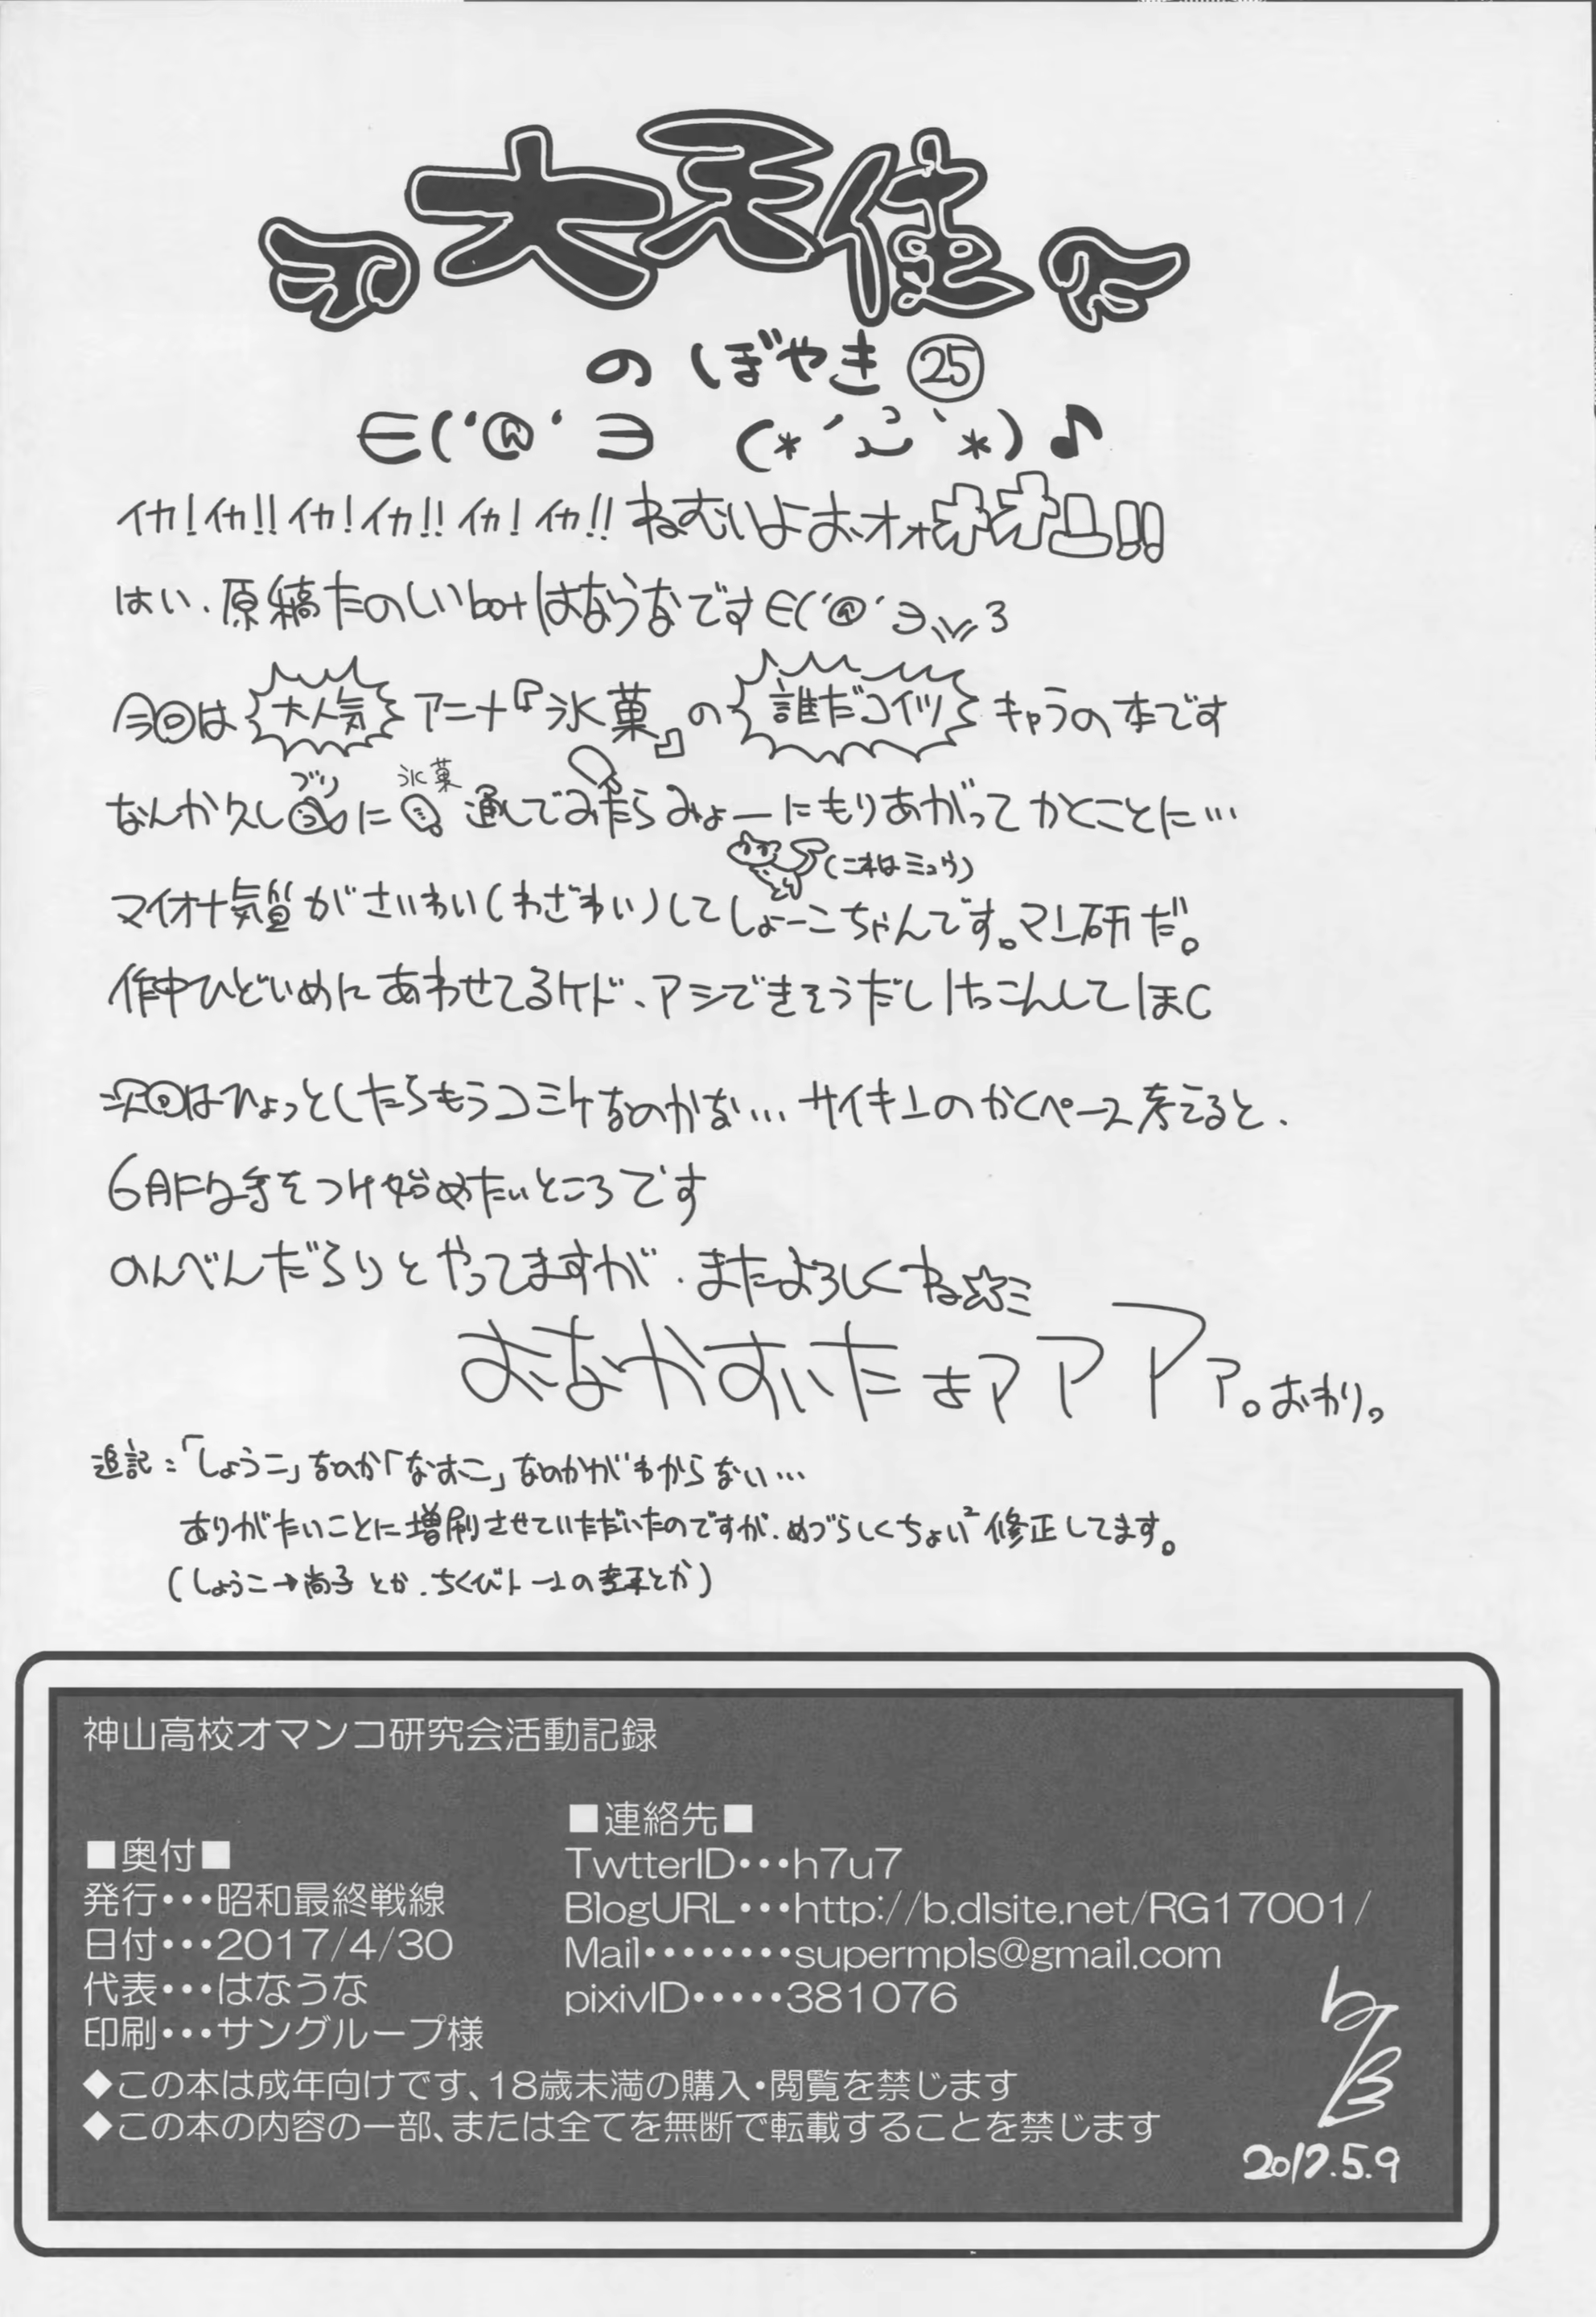 大天使
のぼやき㉕
∈('@'∋ (*´ `*)♪
イカ!イカ!!イカ!イカ!!イカ!イカ!!ねむいよおオォオオ!!
はい、原稿たのしいbotはなうなです∈('@'∋ 3
今回は大人気アニメ『氷菓』の誰だコイツキャラの本です
なんか久しブリに 氷菓 通しでみたらみょーにもりあがってかくことに…
(これはミュウ)
マイナー気質がさいわい(わざわい)してしょーこちゃんです。マン研だ。
作中ひどいめにあわせてるケド、アシできそうだしけっこんしてほC
次回はひょっとしたらもうコミケなのかな…サイキンのかくペース考えると、
6月には手をつけ始めたいところです
のんべんだらりとやってますが、またよろしくね☆ミ
おなかすいたよアアアァ。おわり。
追記:「しょうこ」なのか「なおこ」なのかがわからない…
ありがたいことに増刷させていただいたのですが、めづらしくちょい²修正してます。
(しょうこ→尚子とか、ちくびトーンの とか)
神山高校オマンコ研究会活動記録
■奥付■
発行・・・昭和最終戦線
日付・・・2017/4/30
代表・・・はなうな
印刷・・・サングループ様
■連絡先■
TwtterID・・・h7u7
BlogURL・・・http://b.dlsite.net/RG17001/
Mail・・・・・・・・supermpls@gmail.com
pixivID・・・・・381076
◆この本は成年向けです、18歳未満の購入・閲覧を禁じます
◆この本の内容の一部、または全てを無断で転載することを禁じます
2017.5.9